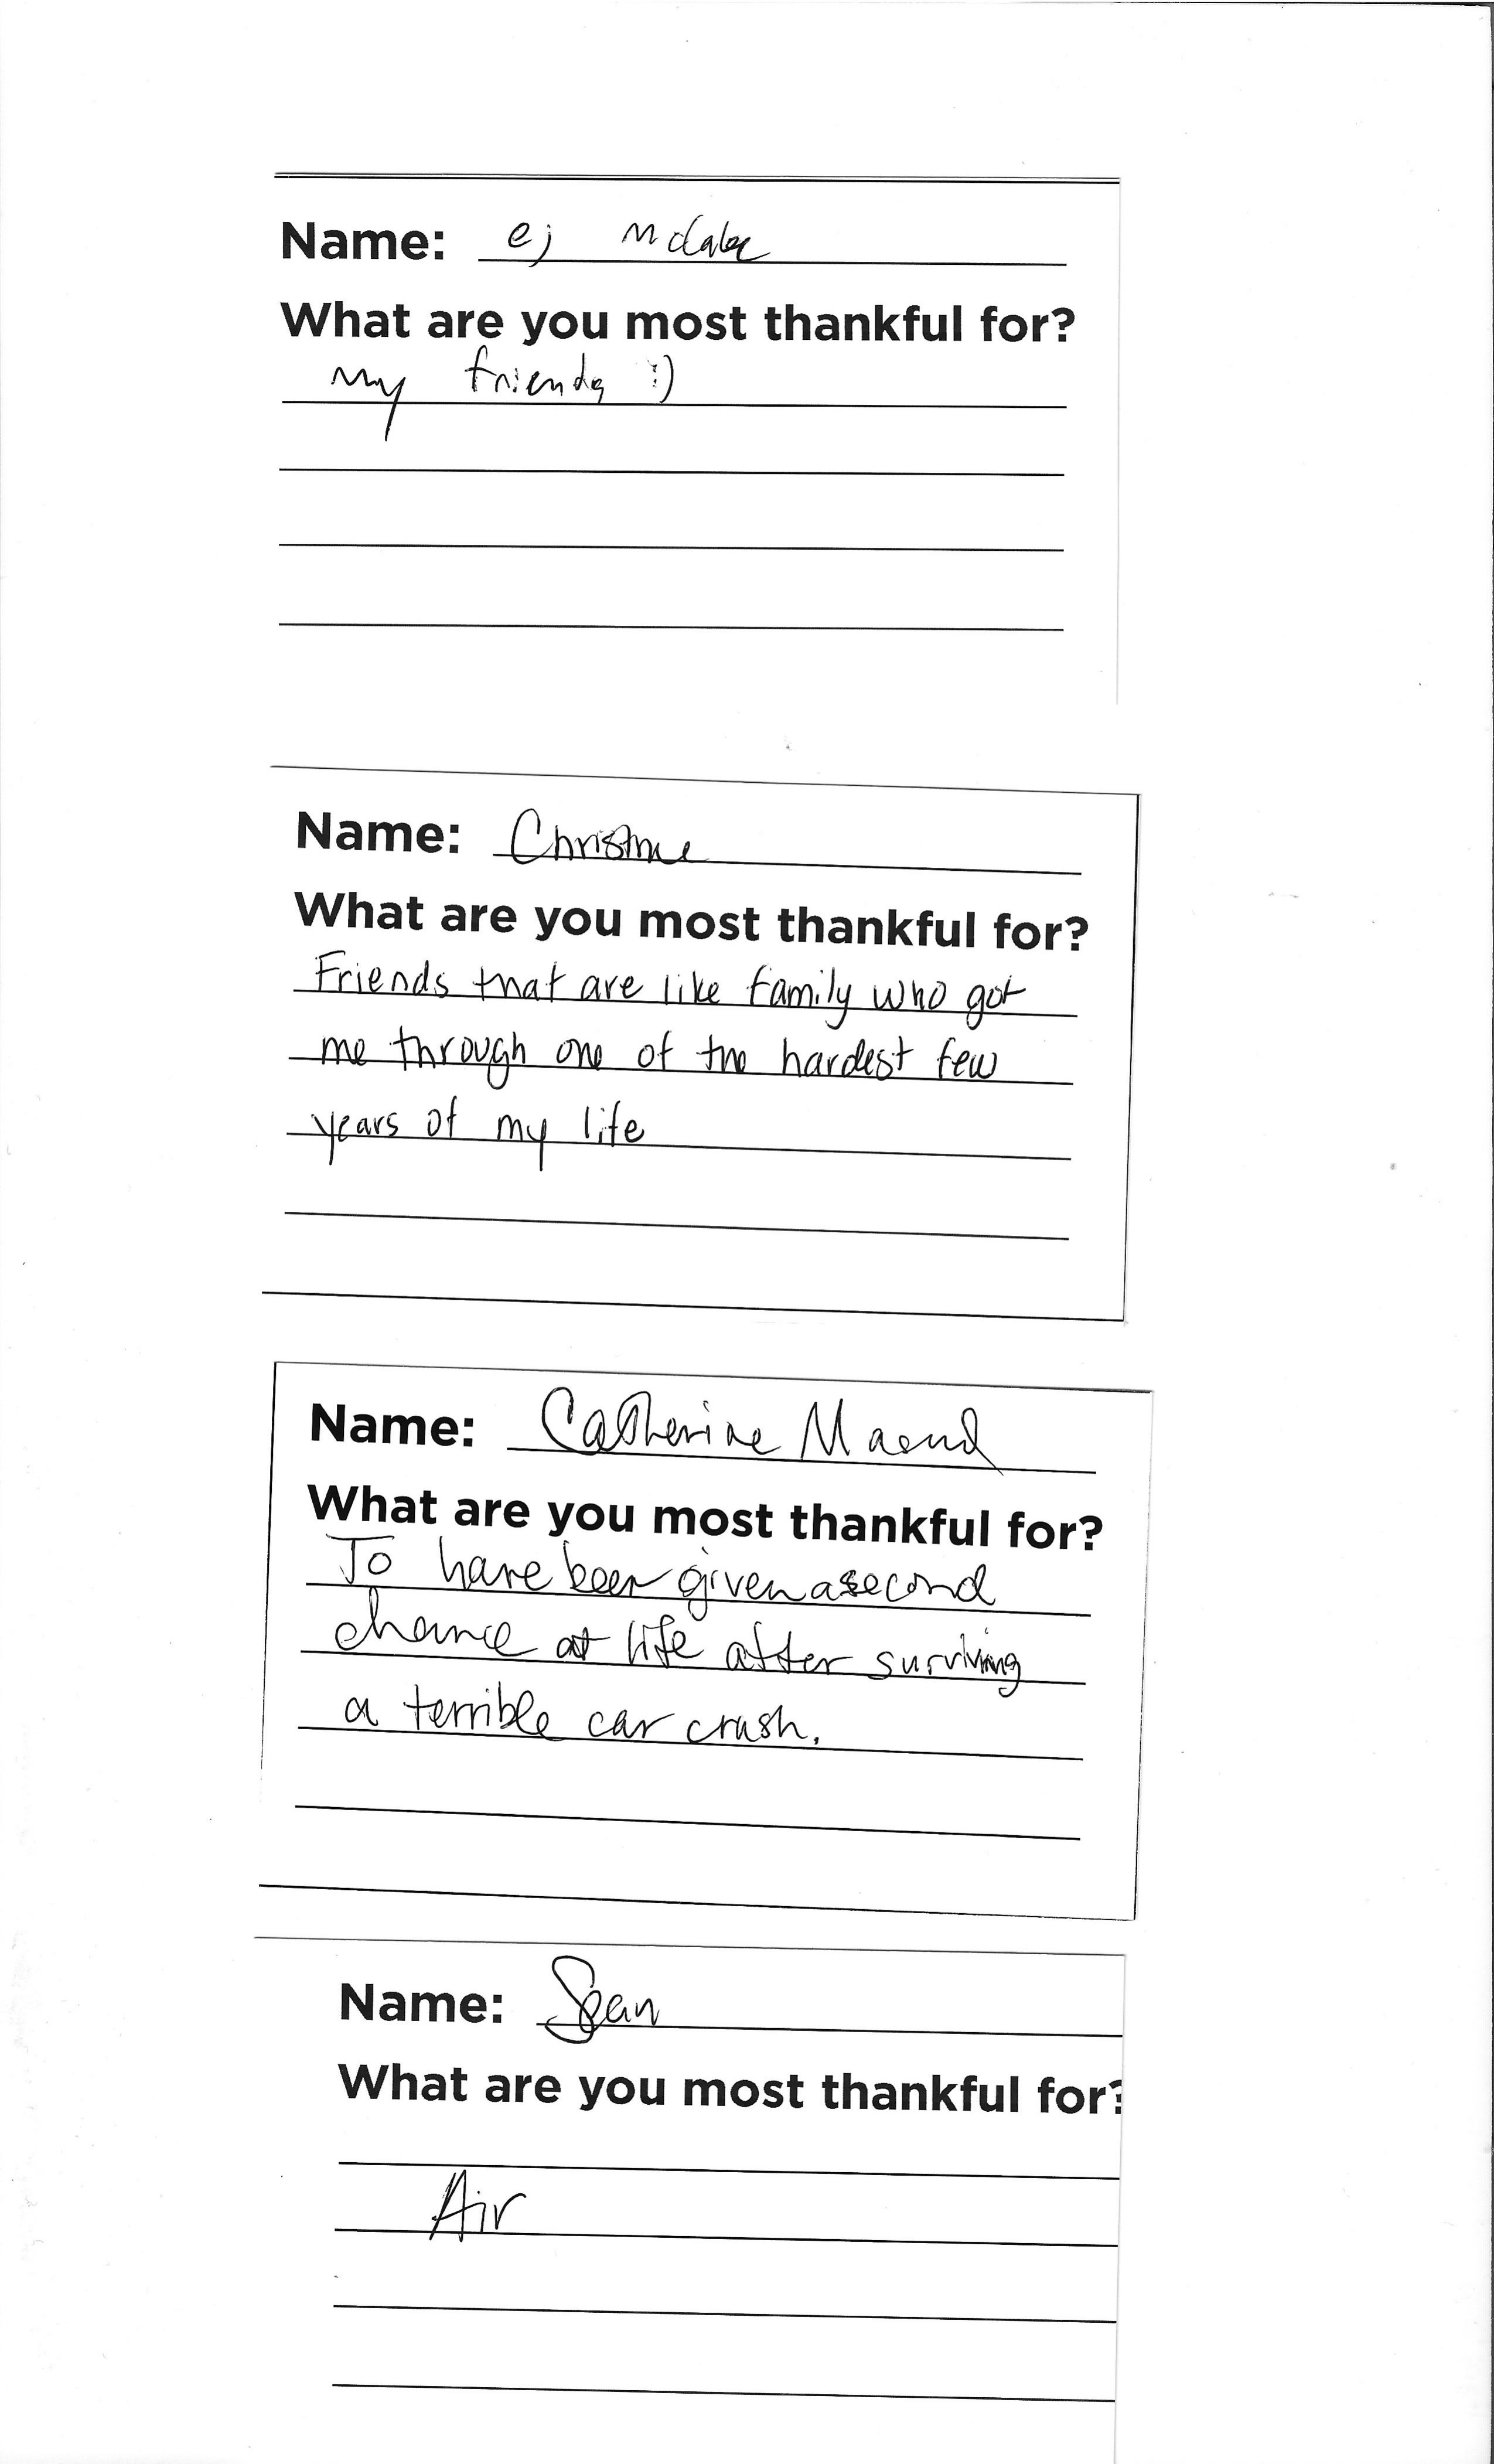 Name: ej mccabe
What are you most thankful for?
my friends :)
Name: Christine
What are you most thankful for?
Friends that are like family who got
me through one of the hardest few
years of my life
Name: Catherine
What are you most thankful for?
To have been given a second
chance at life after surviving
a terrible car crash.
Name: Sean
What are you most thankful for?
Air